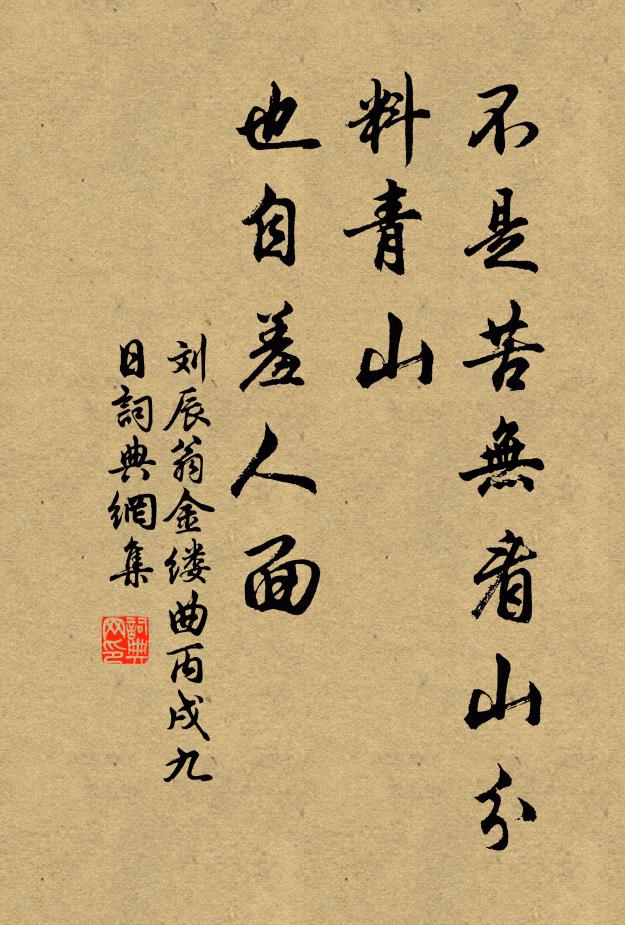 不是苦無看山分
料青山
也自羞人面
刘辰翁金缕曲丙戌九
日詞典網集
詞典
网印